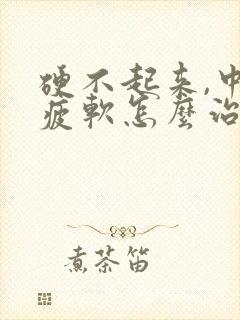 硬不起来,中
疲軟怎麼治
煮茶笛